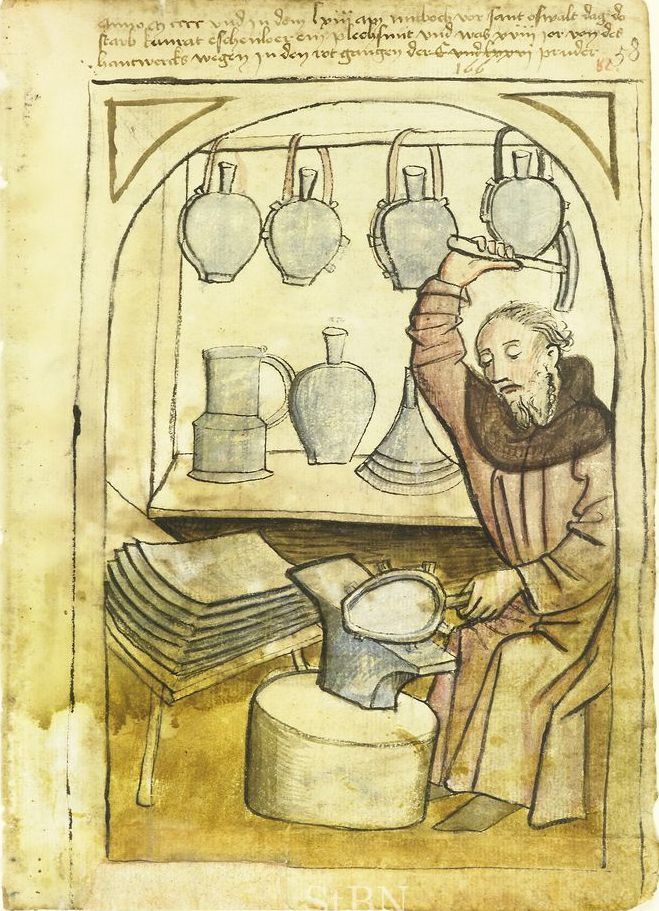 anno m cccc vnd in dem lxiiij am mitboch vor sant oswalt dag do
starb kunrat eschenloer ein plechsmit vnd was xviij jor von des
hantwercks wegen in den rot gangen der C vnd lxxxvj pruder
166 82 58
StBN